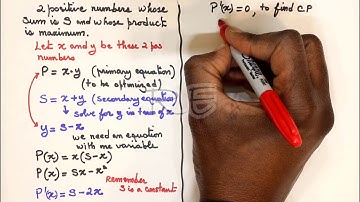 2 positive numbers whose
sum is S and whose product
is maximum.
Let x and y be these 2 pos
numbers
P = x·y (primary equation)
(to be optimized)
S = x+y (secondary equation)
↓ solve for y in term of x
y = S-x
we need an equation
with one variable
P(x) = x(S-x)
P(x) = Sx-x²
Remember
S is a constant
P'(x) = S-2x
P'(x)=0, to find CP